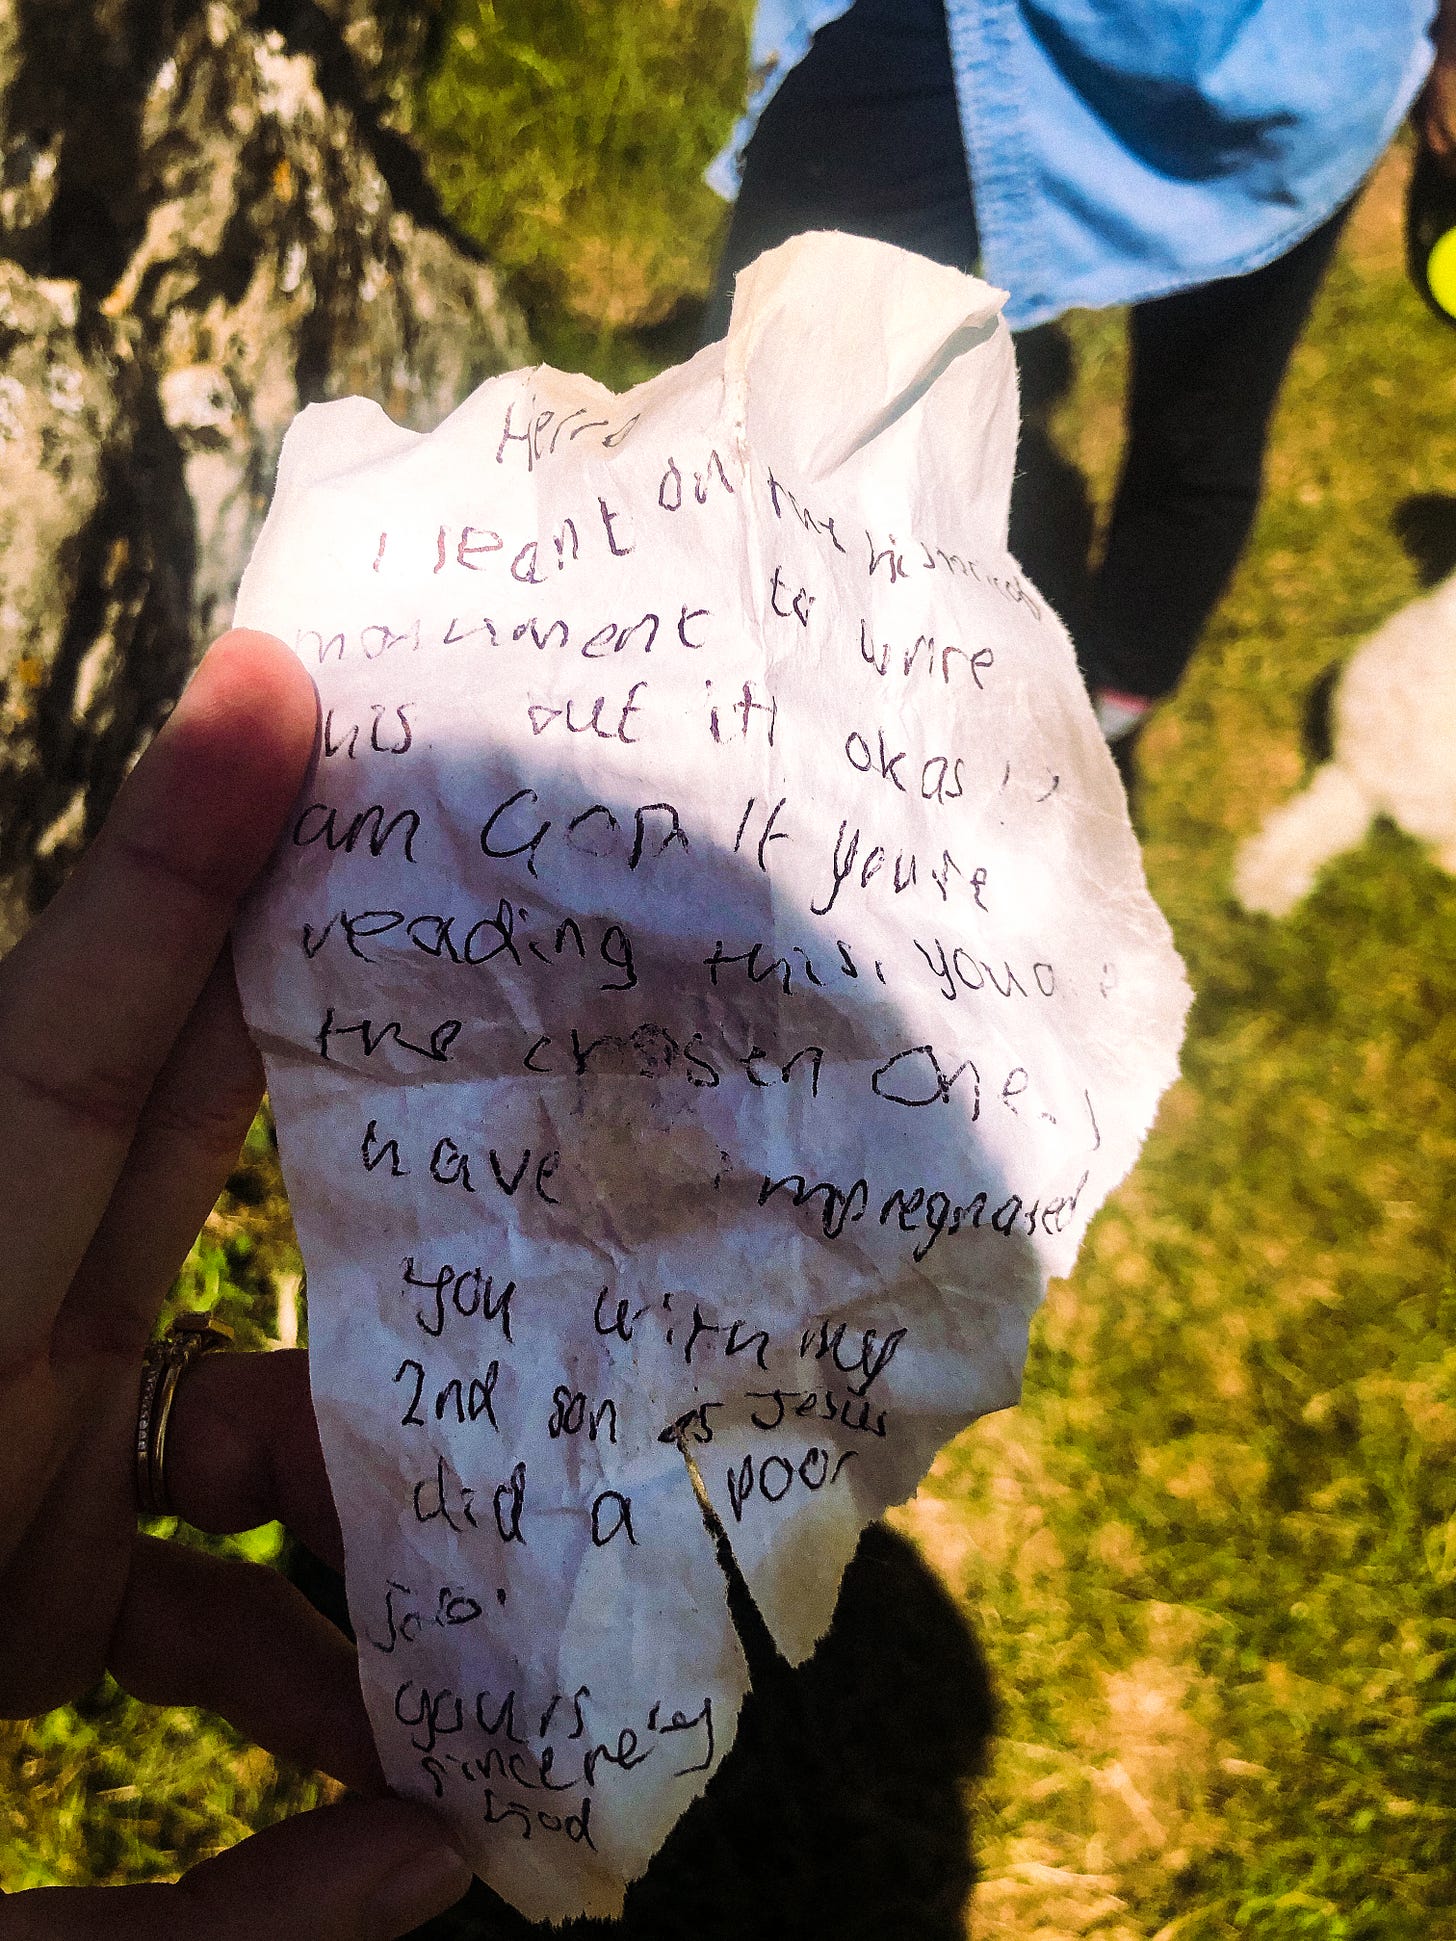 Hello
I leant on the historical
monument to write
this but it's okas I
am GOD If you're
reading this, you are
the chosen One. I
have impregnated
you with my
2nd son as Jesus
did a poor
job.
yours
sincerely
God